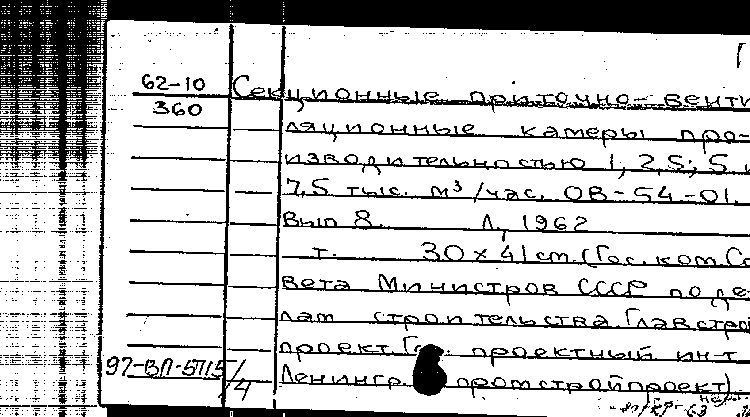 62-10
360
Секционные приточно-венти
ляционные камеры про-
изводительностью 1, 2,5; 5 и
7,5 тыс. м³/час. ОВ-54-01.
Вып 8. Л, 1962
т. 30х41cm (Гос. ком. Со
вета Министров СССР по де
лам строительства. Главстрой
проект. проектный ин-т
Ленингр. промстройпроект).
97-ВП-5715/4